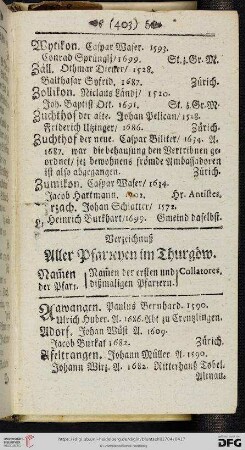 (403)
Wytikon. Caspar Waser. 1593.
Conrad Sprüngli/1699. St. z. Gr. M.
Zäll. Othmar 1528.
Balthasar Syfrid. 1687. Zürich.
Zollikon. Niclaus 1520.
Joh. Baptist Ott. 1691. St. z. Gr. M.
Zuchthof der alte. Johan Pelican/1528.
Friderich Utzinger/1686. Zürich.
Zuchthof der neue. Caspar Biliker/1634. A.
1687. war die behausung den Vertribnen ge-
ordnet/jez bewohnens frömde Ambassadoren
ist also abgegangen. Zürich.
Zumikon. Caspar Waser/1634.
Jacob Hartmann. Hr. Antistes.
Zurzach. Johan Schlatter/1572.
Heinrich Burkhart/1699. Gmeind daselbst.
Verzeichnuß
Aller Pfarreyen im Thurgöw.
Nam̃en Nam̃en der ersten und Collatores,
der Pfarr. dißmaligen Pfarrern.
Aawangen. Paulus Bernhard. 1590.
Ulrich Huber. A. 1686. Abt zu Creutzlingen.
Adorf. Johan Wüst A. 1609.
Jacob Burkat 1682. Zürich.
Affeltrangen. Johann Müller A. 1590.
Johann Wirz A. 1682. Ritterhaus Tobel.
Altnau.